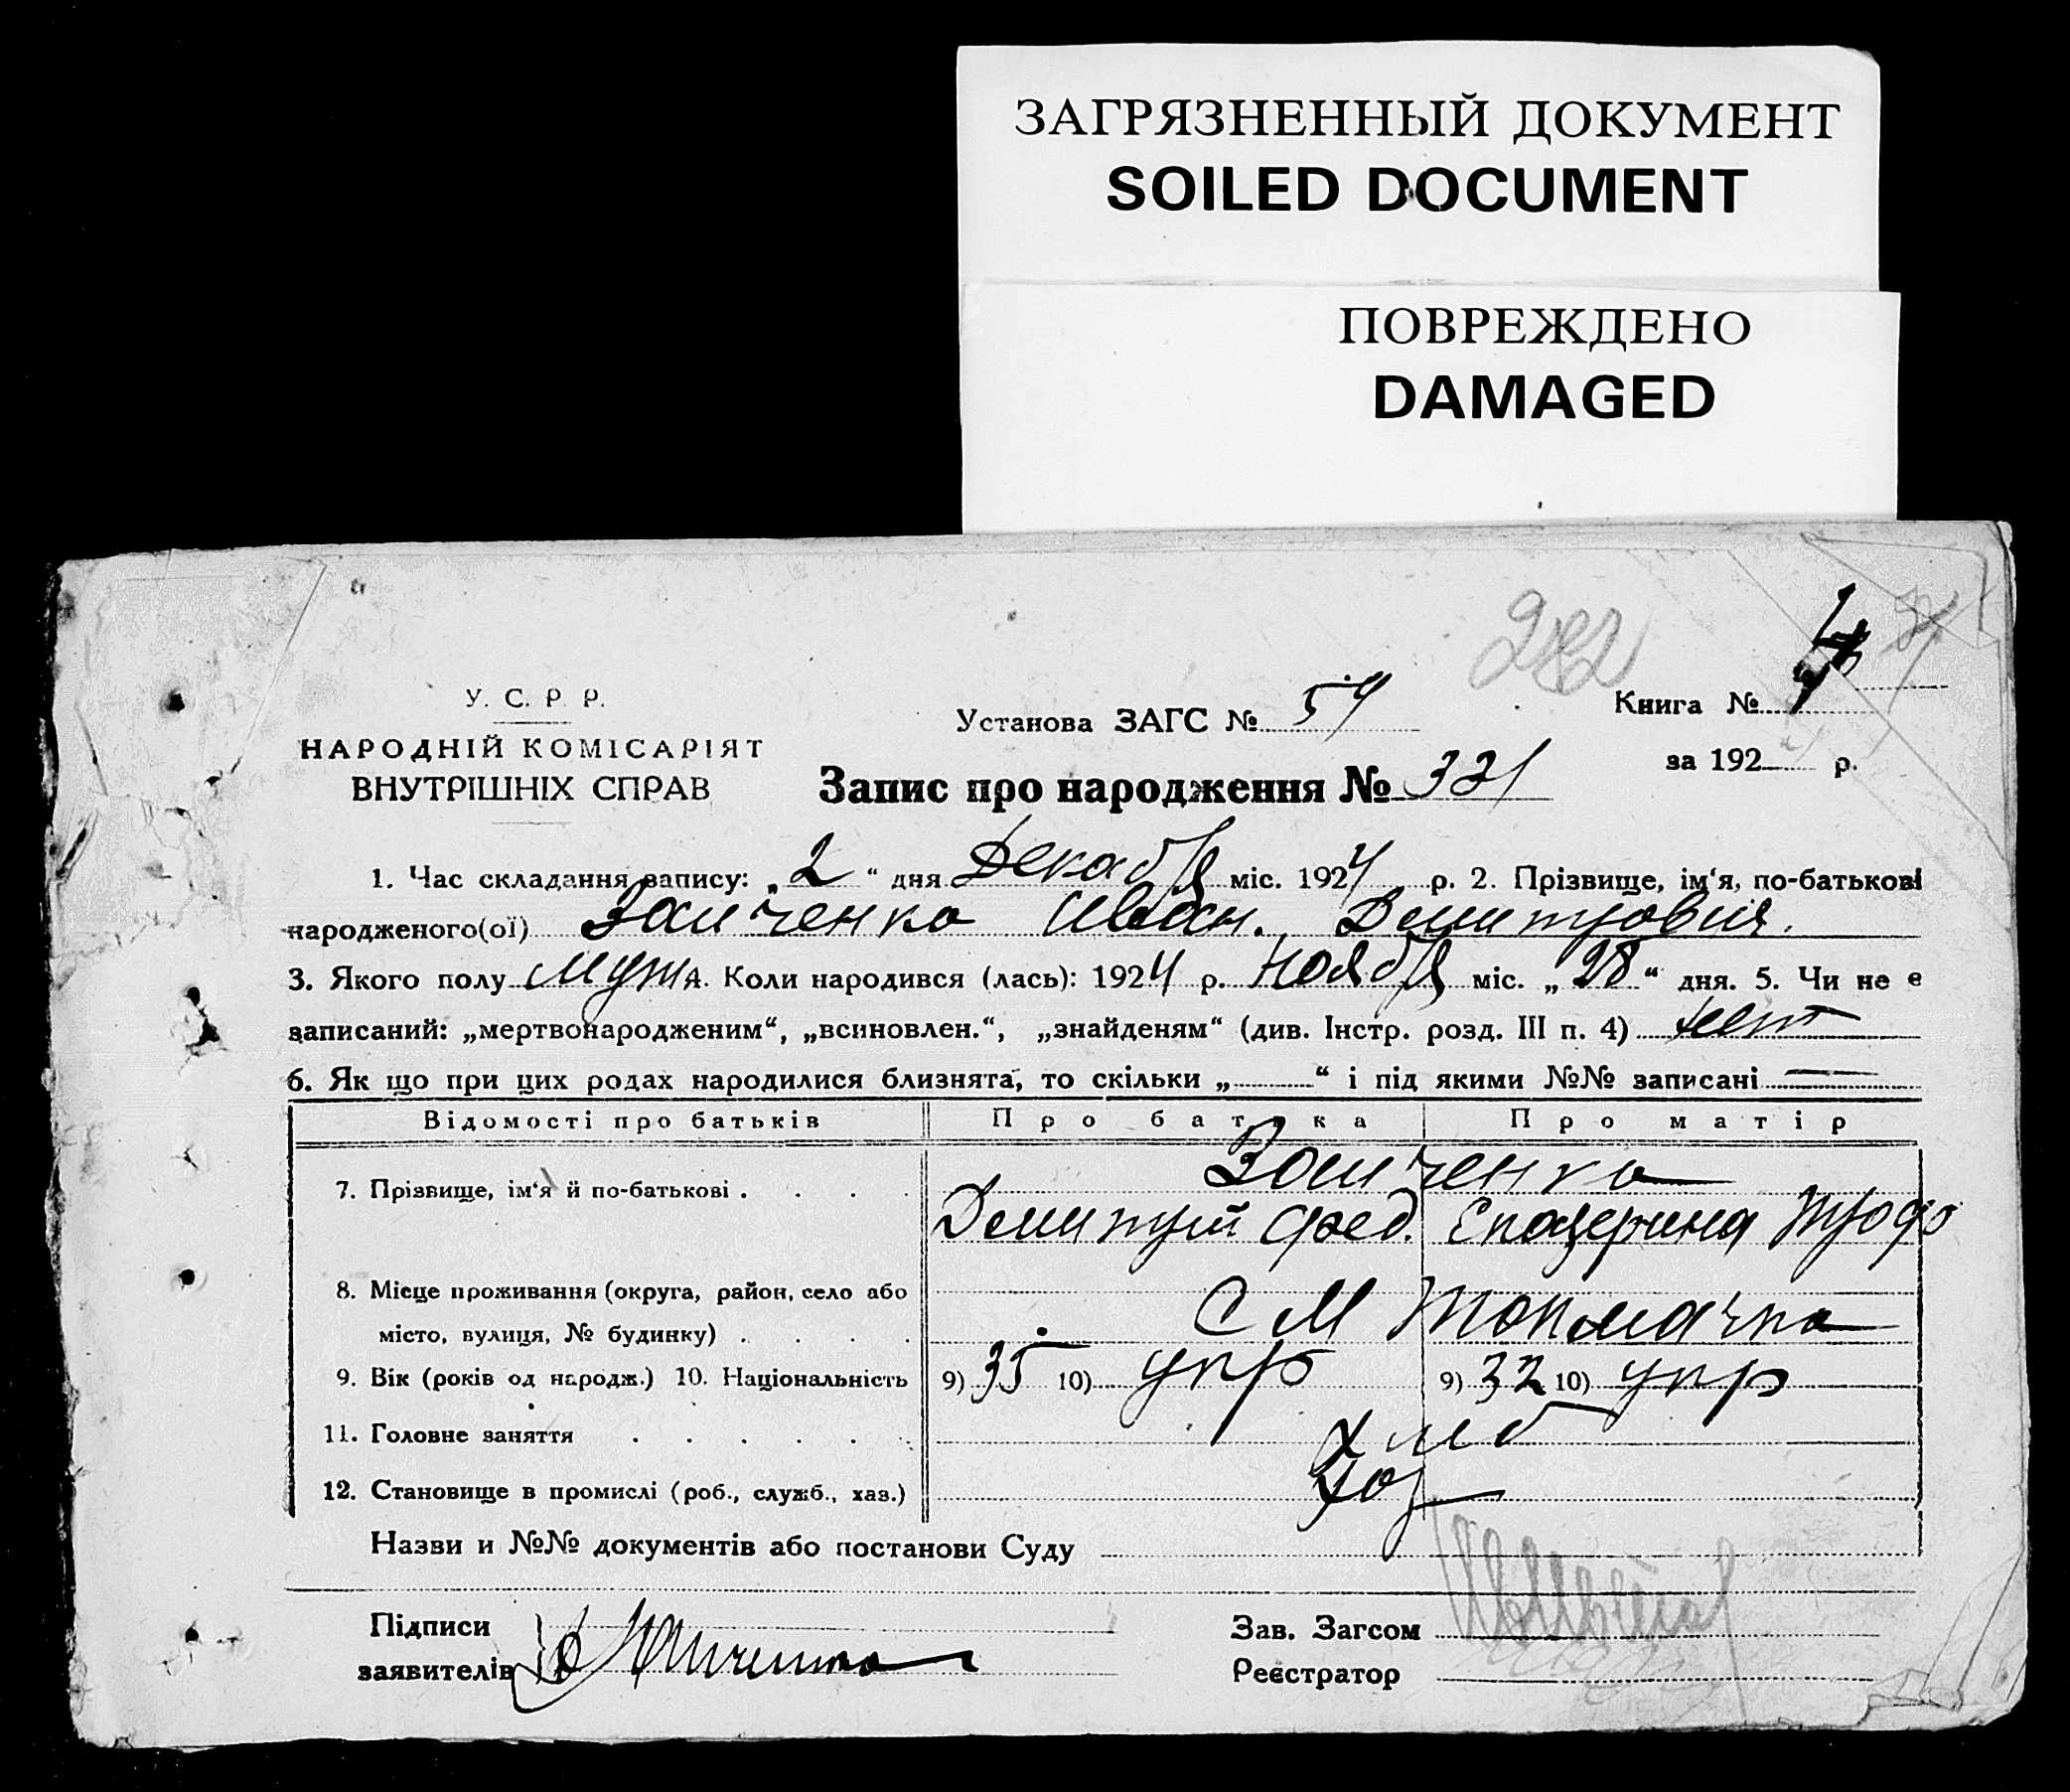 ЗАГРЯЗНЕННЫЙ ДОКУМЕНТ
SOILED DOCUMENT
ПОВРЕЖДЕНО
DAMAGED
У. С. Р. Р.
НАРОДНІЙ КОМІСАРІЯТ
ВНУТРІШНІХ СПРАВ
Установа ЗАГС №
Книга №
за 192 р.
Запис про народження № 321
1. Час складання запису: „2“ дня Декабр міс. 1924 р. 2. Прізвище, ім‘я, по-батькові
народженого(ої) Заиченко Иван. Дмитрович.
3. Якого полу Муж 4. Коли народився (лась): 1924 р. Ноябр міс. „28“ дня. 5. Чи не є
записаний: „мертвонародженим“, „всиновлен.“, „знайденям“ (див. Інстр. розд. III п. 4) нет
6. Як що при цих родах народилися близнята, то скільки „ “ і під якими №№ записані —
Відомості про батьків Про батька Про матір
7. Прізвище, ім‘я й по-батькові . . . . Заиченко
Дмитрий Фед. Екатерина Трофо
8. Місце проживання (округа, район, село або
місто, вулиця, № будинку) . . . . С М Токмачка
9. Вік (років од народж.) 10. Національність 9) 35 10) укр 9) 32 10) укр
11. Головне заняття . . . . . . Хлеб
12. Становище в промислі (роб., служб., хаз.) Хоз
Назви и №№ документів або постанови Суду
Підписи
заявителів
Зав. Загсом
Реєстратор